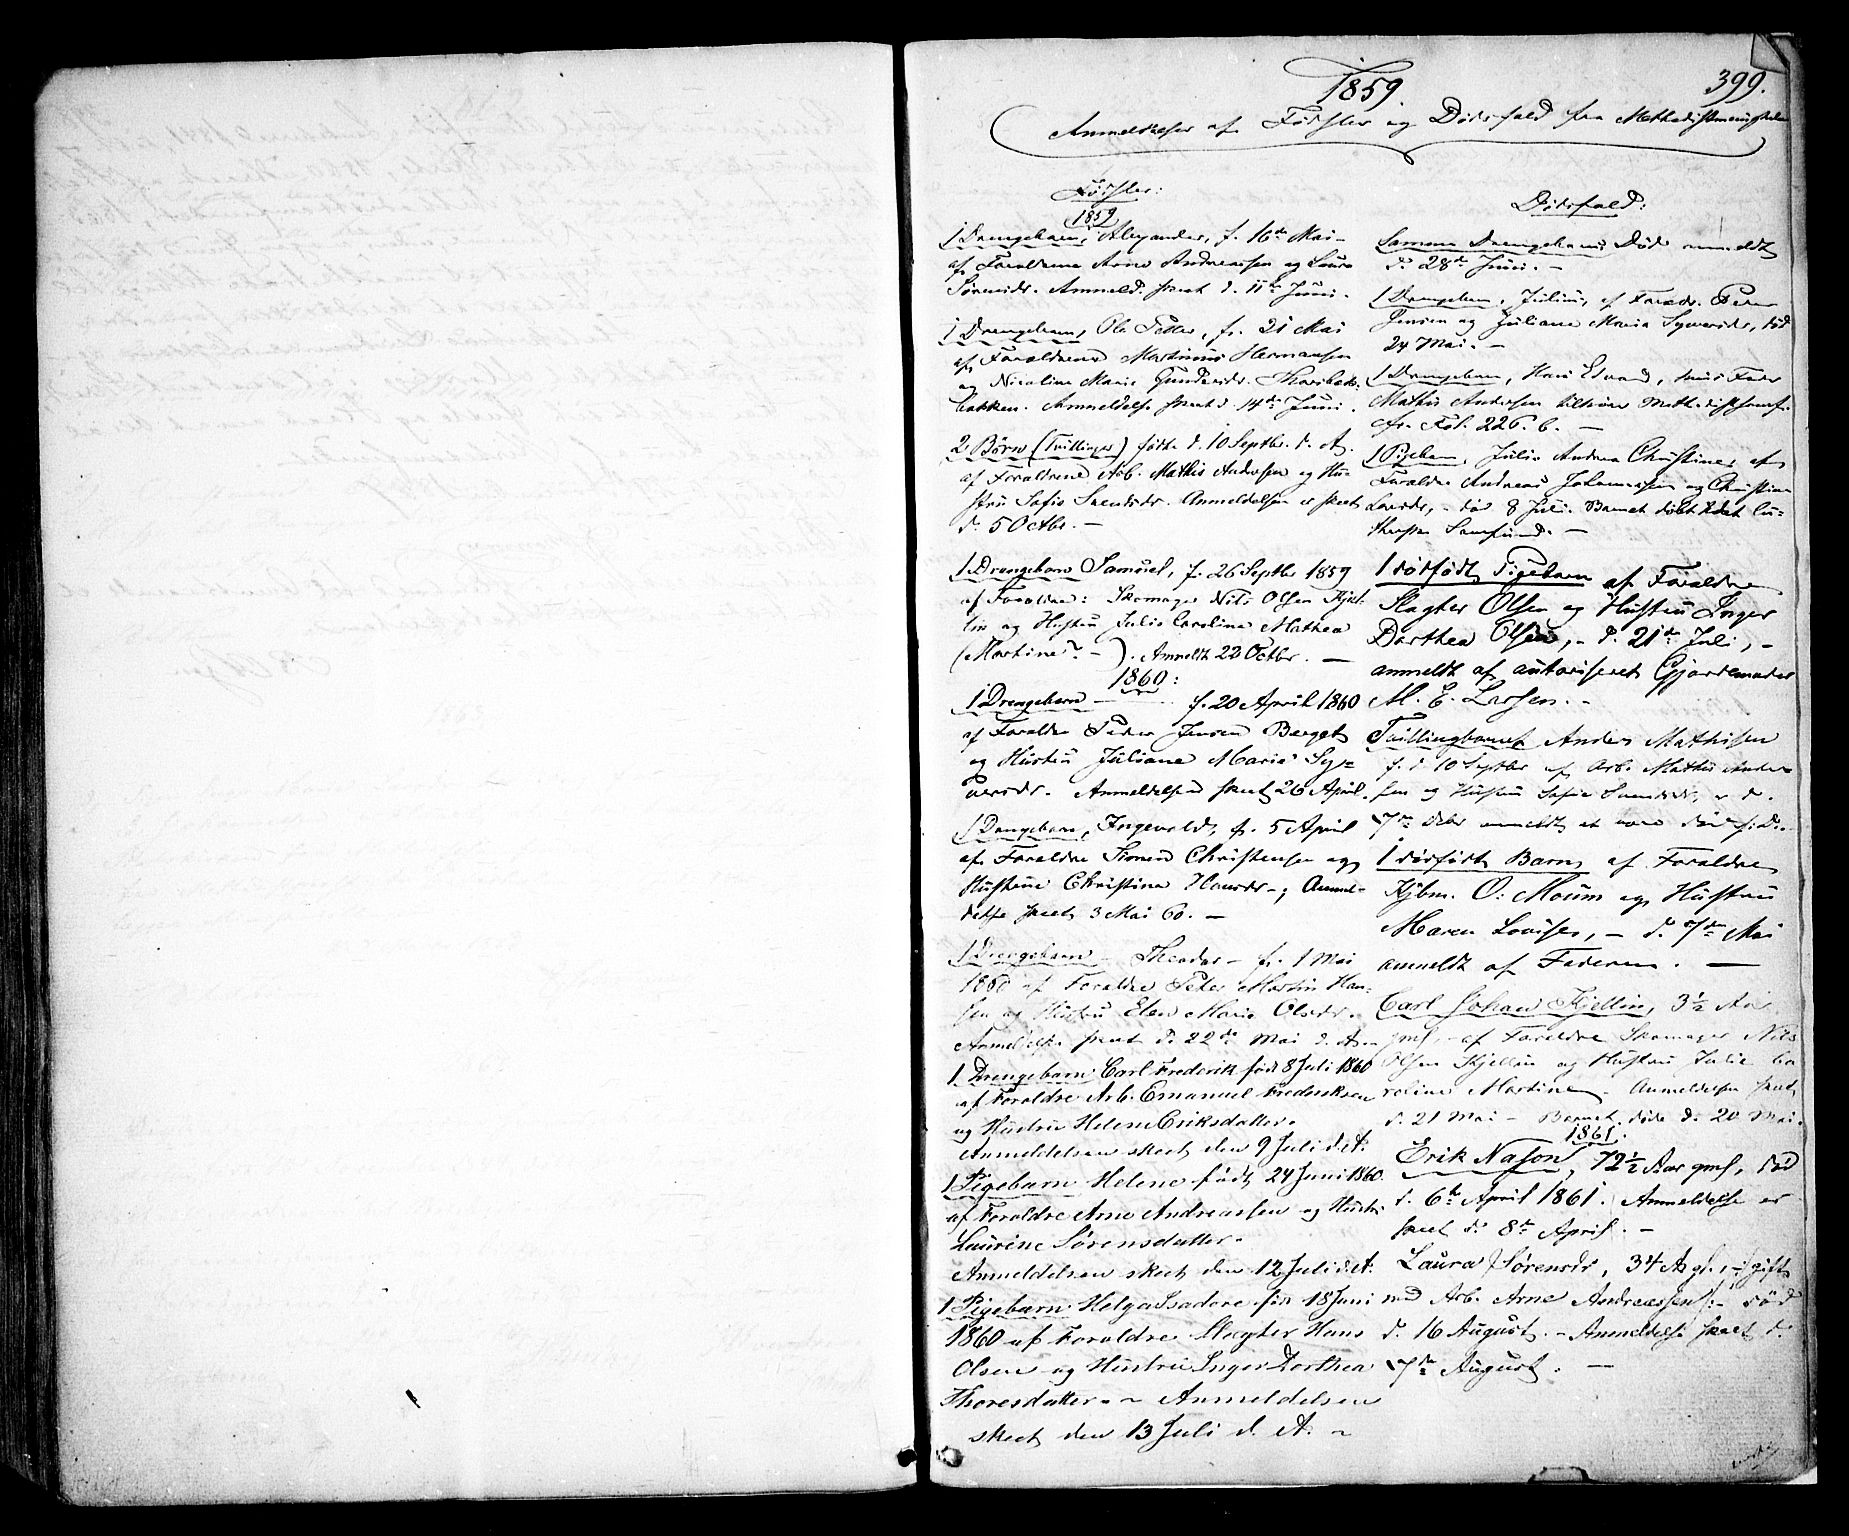 399.
1859.
Anmeldelser af Fødsler og Dødsfald fra Methodistmenigheden
Fødsler:
1859
1 Drengebarn, Alexander, f. 16de Mai -
af Forældrene Arne Andreassen og Laura
Sørensdr. Anmeld. skeet d. 11te Juni.
1 Drengebarn, Ole Peder, f. 21 Mai
af Forældrene Martinius Hermansen
og Nicoline Marie Gundersdr.
bakken. Anmeldelse skeet d. 14de Juni.
2 Børn (Tvillinger) fødte d. 10 Septbr. d. A.
af Forældrene Arb. Mathis Andersen og Hu-
stru Sofie Svendsdr. Anmeldelsen er skeet
d. 5 Octbr. -
1 Drengebarn Samuel, f. 26 Septbr 1859
af Forældre: Skomager Nils Olsen Kjel-
lin og Hustru Julie Caroline Mathea
(Martine? - ). Anmeldt 22 Octbr. -
1860:
1 Drengebarn - f. 20 April 1860
af Forældre Peder Jensen Berget
og Hustru Juliane Marie Sy-
versdr. Anmeldelsen skeet 26 April.
1 Drengebarn, Ingevald, f. 5 April
af Forældre Simen Christensen og
Hustrue Christine Hansdr -; Anmel-
delse skeet 3 Mai 60. -
1 Drengebarn - Theodor - f. 1 Mai
1860 af Forældre Peder Martin Han-
sen og Hustru Elen Marie Olsdr.
Anmeldelse skeet d. 22de Mai d. A.
1 Drengebarn Carl Frederik født 8 Juli 1860
af Forældre Arb. Emanuel Frederiksen
og Hustru Helene Eriksdatter.
Anmeldelsen skeet den 9 Juli d. A.
1 Pigebarn Helene født 24 Juni 1860
af Forældre Arne Andreassen og Hustru
Laurine Sørensdatter.
Anmeldelsen skeet den 12 Juli d. A.
1 Pigebarn Helga Isadore før 18 Juni
1860 af Forældre Slagter Hans
Olsen og Hustru Inger Dorthea
Thoresdatter. - Anmeldelsen
skeet den 13 Juli d. A. -
Dødsfald:
Samme Drengebarns Død anmeldt
d. 28de Juni. -
1 Drengebarn, Julius, af Forældr. Peder
Jensen og Juliane Maria Syversdr, død
24 Mai. -
1 Drengebarn, Hans Edvard, hvis Fader
Mathis Andersen tilhører Methodistsamf.
cfr. Fol. 226. b. -
1 Pigebarn, Julie Andrea Christine, af
Forældre Andreas Johannessen og Christine
Larsdr, - død 8 Juli. Barnet døbt i det lu-
therske Samfund. -
1 dødfødt Pigebarn af Forældre
Slagter Olsen og Hustru Inger
Dorthea Olsen, - d. 21de Juli, -
anmeldt af autoriseret Gjordemoder
M. E. Larsen. -
Tvillingbarnet Anders Mathisen
f. d. 10 Septbr af Arb. Mathis Ander-
sen og Hustru Sofie Svendsdr, er d.
7de Debr anmeldt at være død
1 dødfødt Barn af Forældre
Kjbm. O. Moum og Hustru
Maren Lovise, - d. 7de Mai
anmeldt af Faderen. -
Carl Johan Kjellin, 3½ Aar
gml, - af Forældre Skomager Nils
Olsen Kjellin og Hustru Julie Ca-
roline Martine. Anmeldelsen skeet
d. 21 Mai - Barnet døde d. 20 Mai.
1861.
Erik Nason, 72½ Aar gml, død
d. 6te April 1861. Anmeldelse er
skeet d. 8de April. -
Laura Sørensdr, 34 A. gl., - gift
med Arb. Arne Andreassen, - død
d. 16 August. - Anmeldelse skeet d.
7de August. -